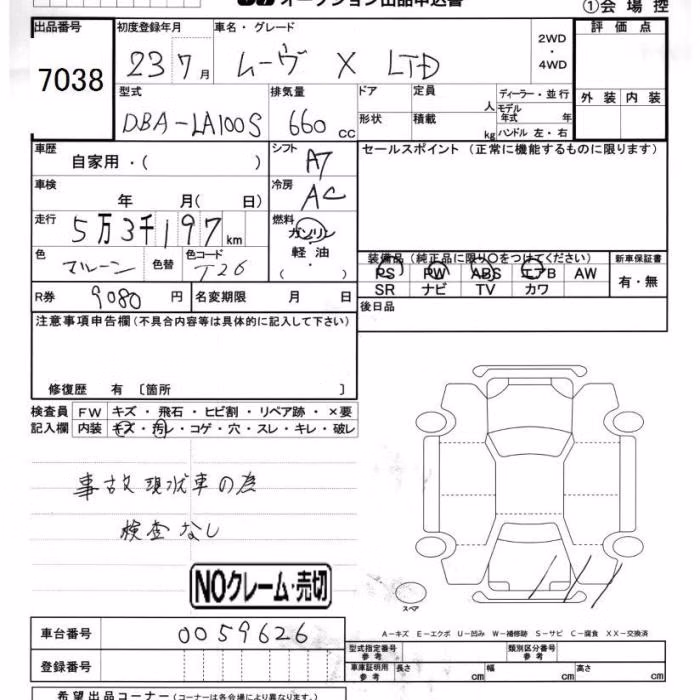 オークション出品申込書
①会場控
出品番号 7038
初度登録年月 23 7月
車名・グレード ムーヴ X LTD
2WD・4WD
評価点
外装 内装
型式 DBA-LA100S
排気量 660 cc
ドア
定員 人
形状
積載 kg
ディーラー・並行
モデル年式 年
ハンドル 左・右
車歴 自家用・( )
シフト AT
セールスポイント (正常に機能するものに限ります)
車検 年 月( 日)
冷房 AC
走行 5万3千197km
燃料 ガソリン・軽油・( )
色 マルーン
色替
色コード T26
装備品(純正品に限り○をつけてください)
PS PW ABS エアB AW
SR ナビ TV カワ
新車保証書 有・無
R券 9080円
名変期限 月 日
後日品
注意事項申告欄(不具合内容等は具体的に記入して下さい)
修復歴 有 〔箇所 〕
検査員記入欄
FW キズ・飛石・ヒビ割・リペア跡・×要
内装 キズ・汚レ・コゲ・穴・スレ・キレ・破レ
事故現状車の為
検査なし
NOクレーム・売切
スペア
A-キズ E-エクボ U-凹み W-補修跡 S-サビ C-腐食 XX-交換済
車台番号 0059626
登録番号
型式指定番号 参考
類別区分番号 参考
車庫証明用 参考 長さ cm 幅 cm 高さ cm
希望出品コーナー(コーナーは各会場により異なります。)